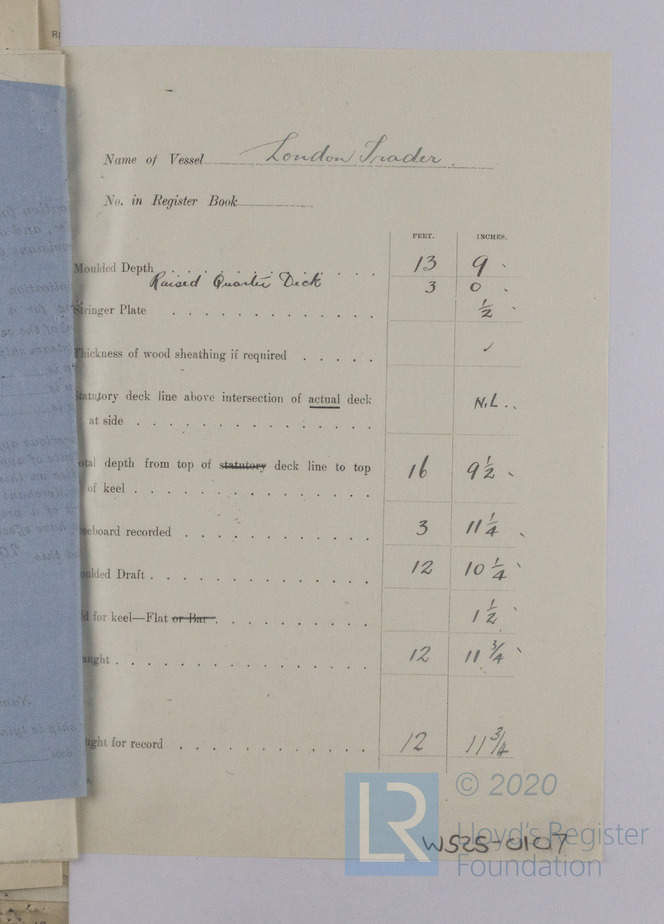 Name of Vessel London Trader.
No. in Register Book
FEET. INCHES.
Moulded Depth 13 9
Raised Quarter Deck 3 0
Stringer Plate 1/2
Thickness of wood sheathing if required ✓
Statutory deck line above intersection of actual deck
at side NIL..
otal depth from top of statutory deck line to top
of keel 16 9 1/2
eeboard recorded 3 11 1/4
oulded Draft 12 10 1/4
d for keel—Flat or Bar 1 1/2
aught 12 11 3/4
ught for record 12 11 3/4
LR
© 2020
Lloyd's Register
Foundation
W525-0107